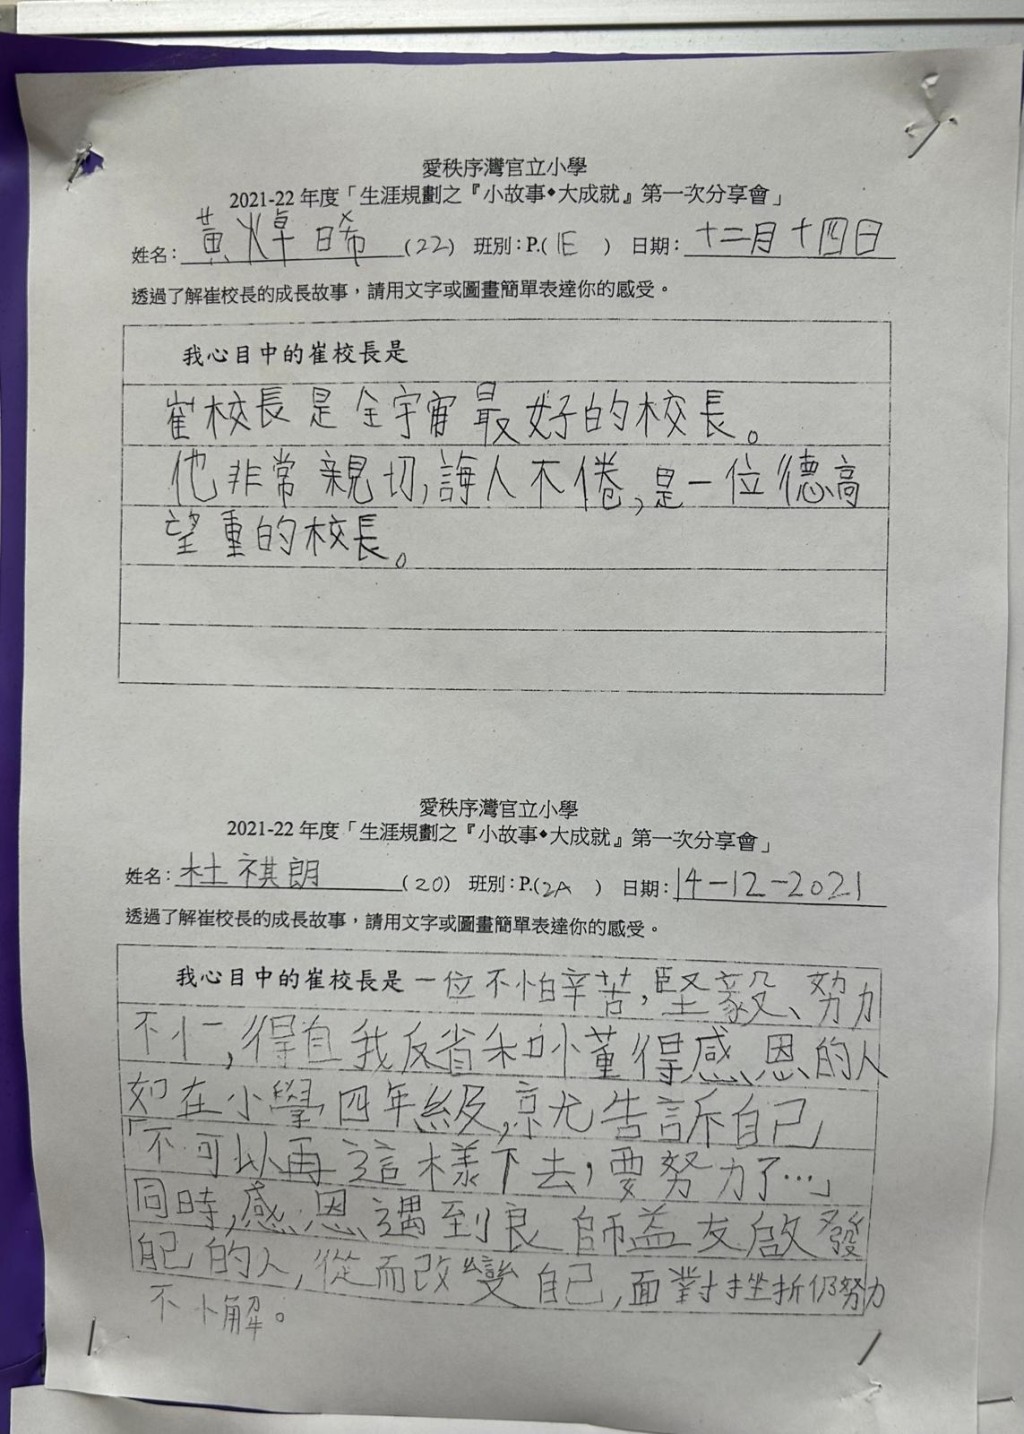 愛秩序灣官立小學
2021-22 年度「生涯規劃之『小故事◆大成就』第一次分享會」
姓名：黃焯晞 (22) 班別：P.(1E) 日期：十二月十四日
透過了解崔校長的成長故事，請用文字或圖畫簡單表達你的感受。
我心目中的崔校長是
崔校長是全宇宙最好的校長。
他非常親切，誨人不倦，是一位德高
望重的校長。
愛秩序灣官立小學
2021-22 年度「生涯規劃之『小故事◆大成就』第一次分享會」
姓名：杜祺朗 (20) 班別：P.(2A) 日期：14-12-2021
透過了解崔校長的成長故事，請用文字或圖畫簡單表達你的感受。
我心目中的崔校長是一位不怕辛苦，堅毅、努力
不，得自我反省和懂得感恩的人
如在小學四年級，就告訴自己
「不可以再這樣下去，要努力了…」
同時，感恩遇到良師益友啟發
自己的人，從而改變自己，面對挫折仍努力
不懈。